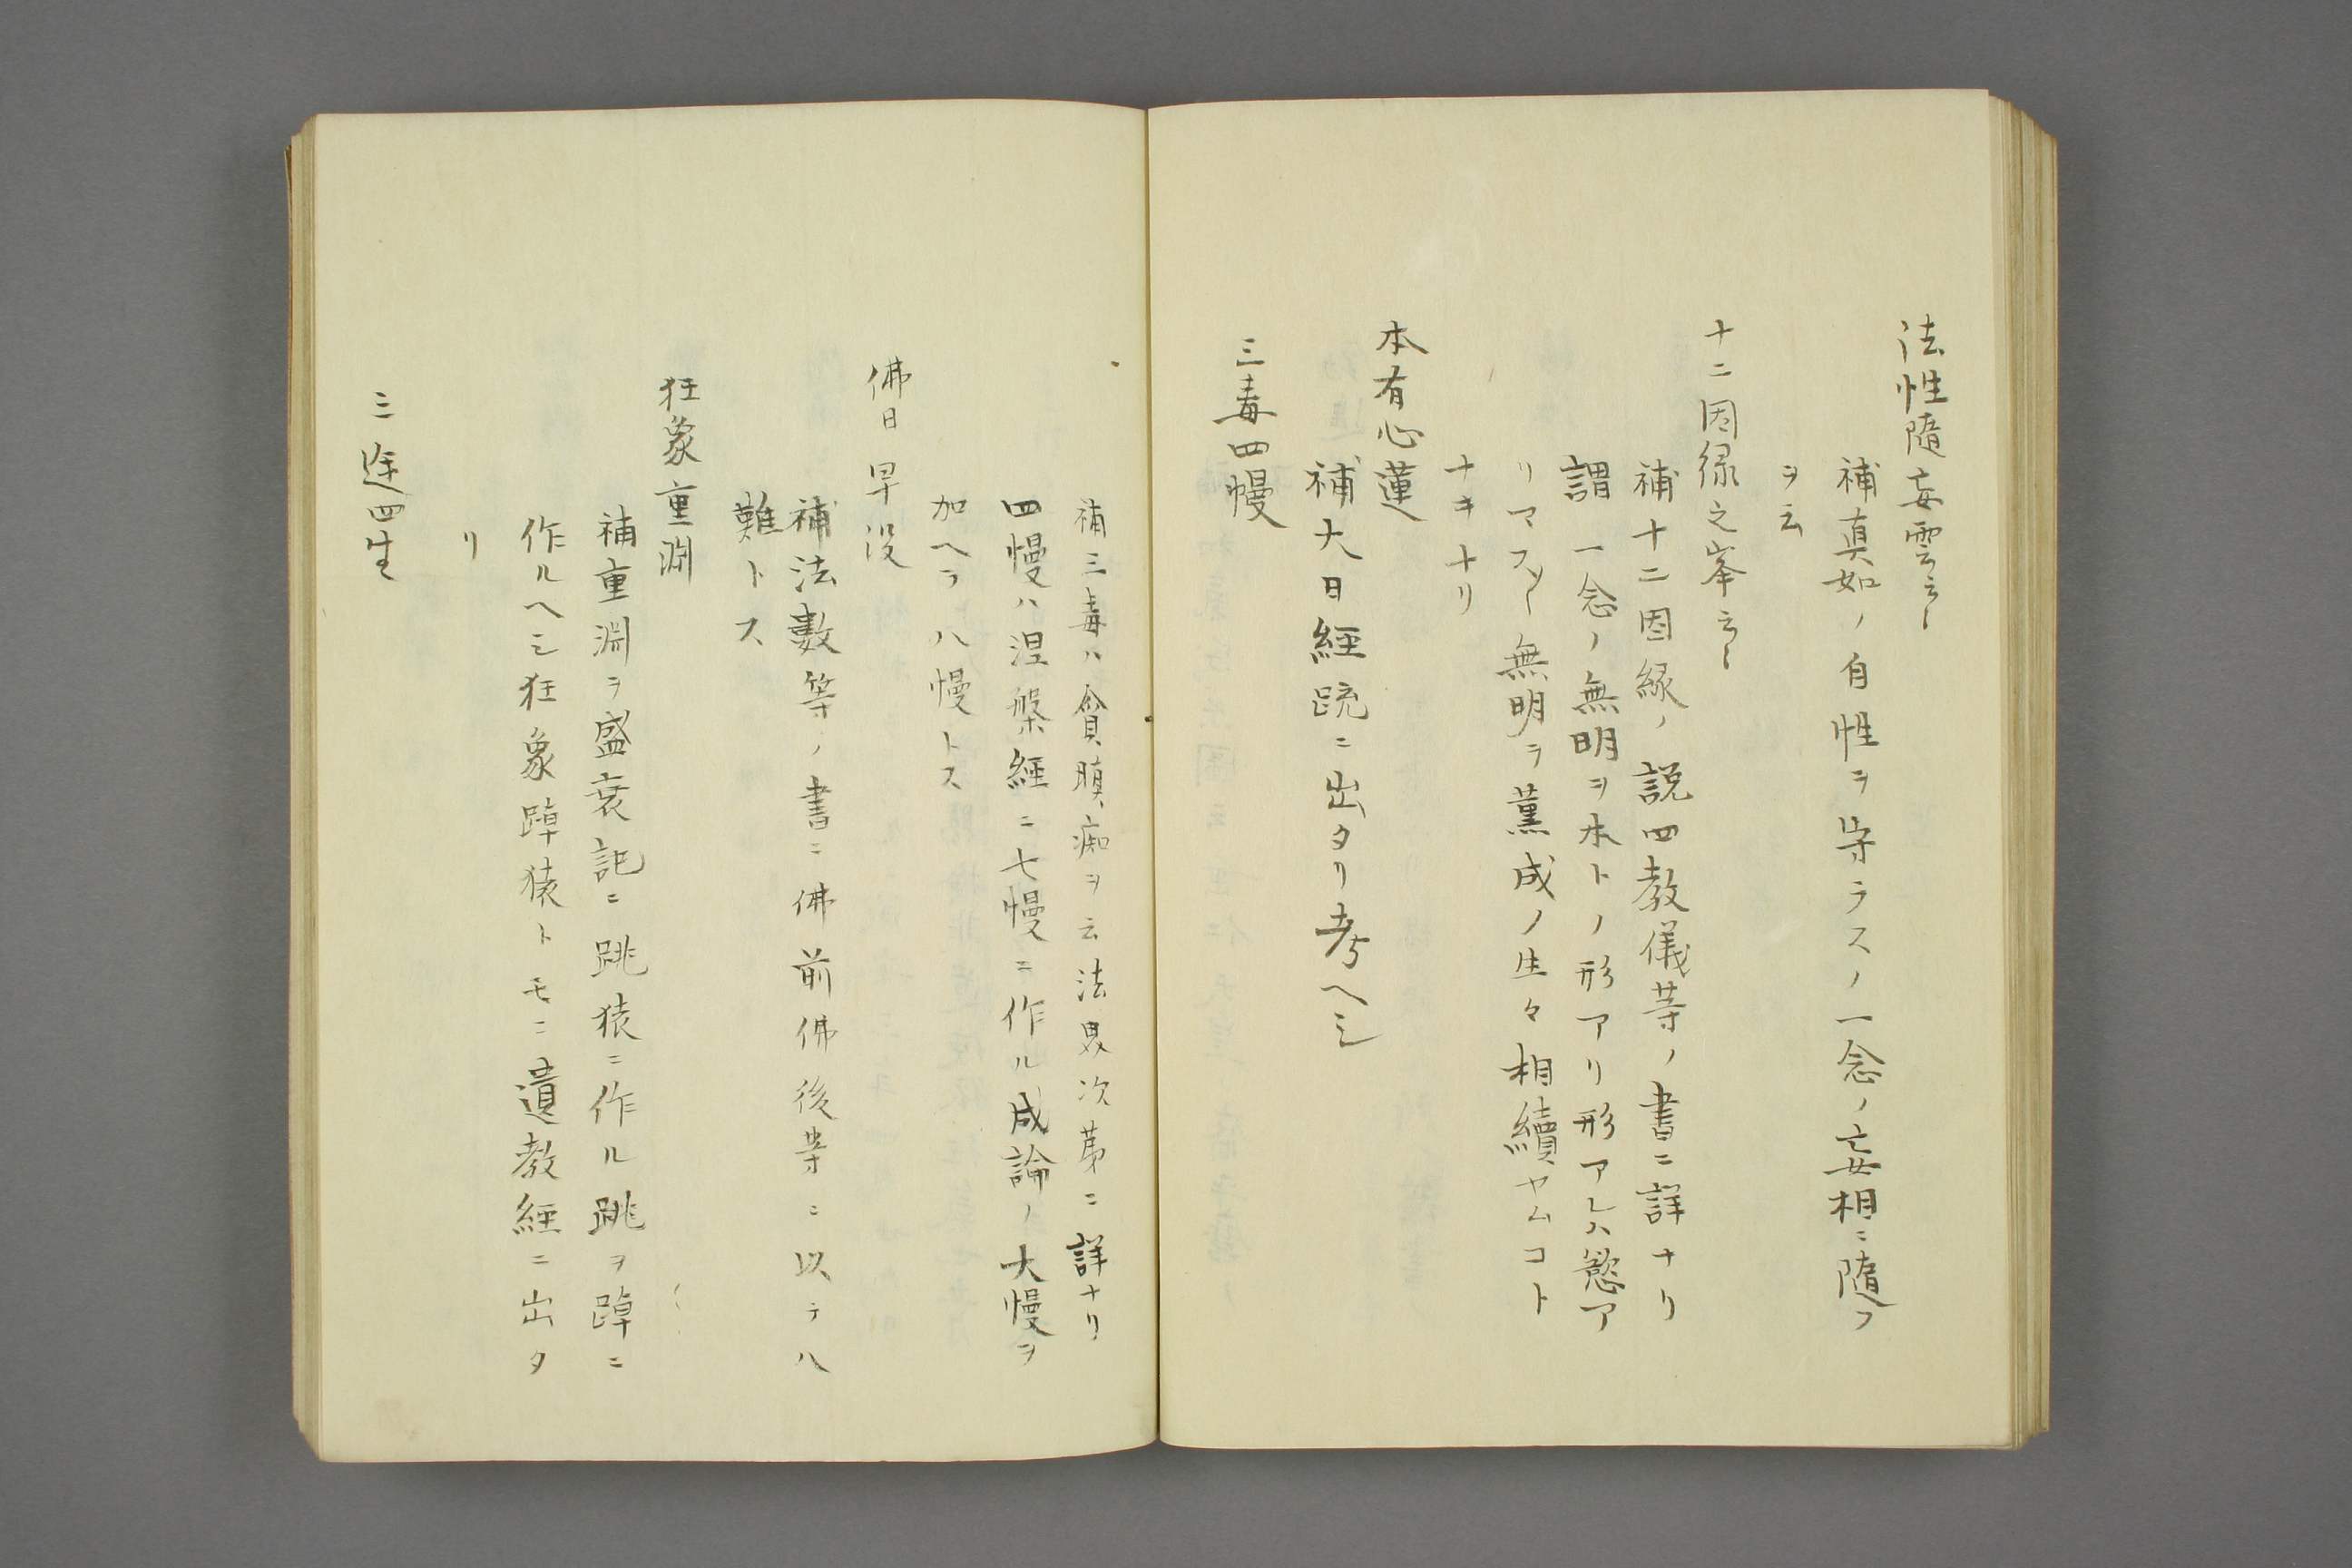 法性隨妄雲云〻
補真如ノ自性ヲ守ラスノ一念ノ妄相ニ隨フ
ヲ云
十二因緑之峯云〻
補十二因縁ノ説四教儀等ノ書ニ詳ナリ
謂一念ノ無明ヲ本トノ形アリ形アレハ慾ア
リマス〻無明ヲ薫成ノ生々相續ヤムコト
ナキナリ
本有心蓮
補大日経疏ニ出タリ考ヘシ
三毒四慢
補三毒ハ貪瞋痴ヲ云法界次苐ニ詳ナリ
四慢ハ涅槃経ニ七慢ニ作ル成論ノ大慢ヲ
加ヘテ八慢トス
佛日早没
補法數等ノ書ニ佛前佛後等ニ以テハ
難トス
狂象重淵
補重淵ヲ盛衰記ニ跳猿ニ作ル跳ヲ踔ニ
作ルヘシ狂象踔猿トモニ遺教経ニ出タ
リ
三途四生